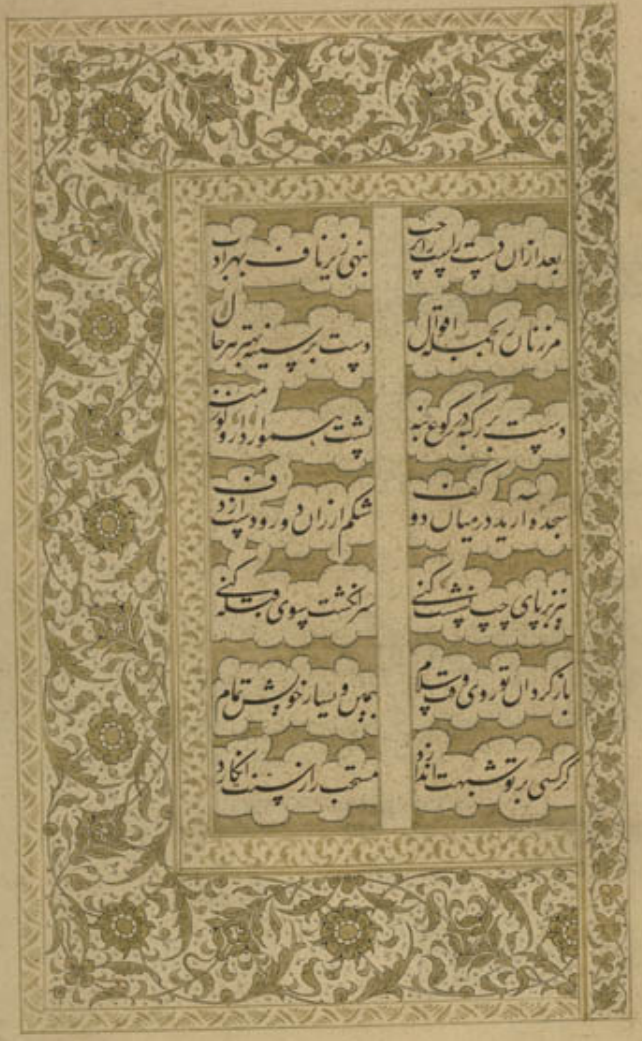 بعد ازان دست راست را بر چپ
بنهی زیر ناف بهر ادب
مر زنان بجمله اقوال
دست بر سینه بهتر بهر حال
دست بر رکبه در رکوع بنه
پشت هموار دار و
سجده آرید درمیان دو کف
شکم از ران دور و دست از
نیز بر پای چپ نشست کنی
سر انگشت سوی قبله کنی
باز گردان تو روی وقت سلام
بیمین و یسار خویش تمام
گر کسی بر تو شبهت اندازد
مستحب را ز سنت انکارد